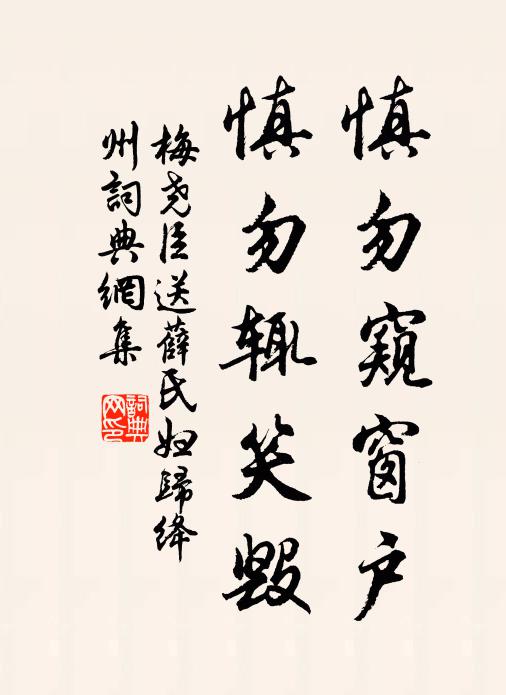 慎勿窥窗户
慎勿辄笑毁
梅尧臣送薛氏妇歸绛
州詞典網集
詞典
网印